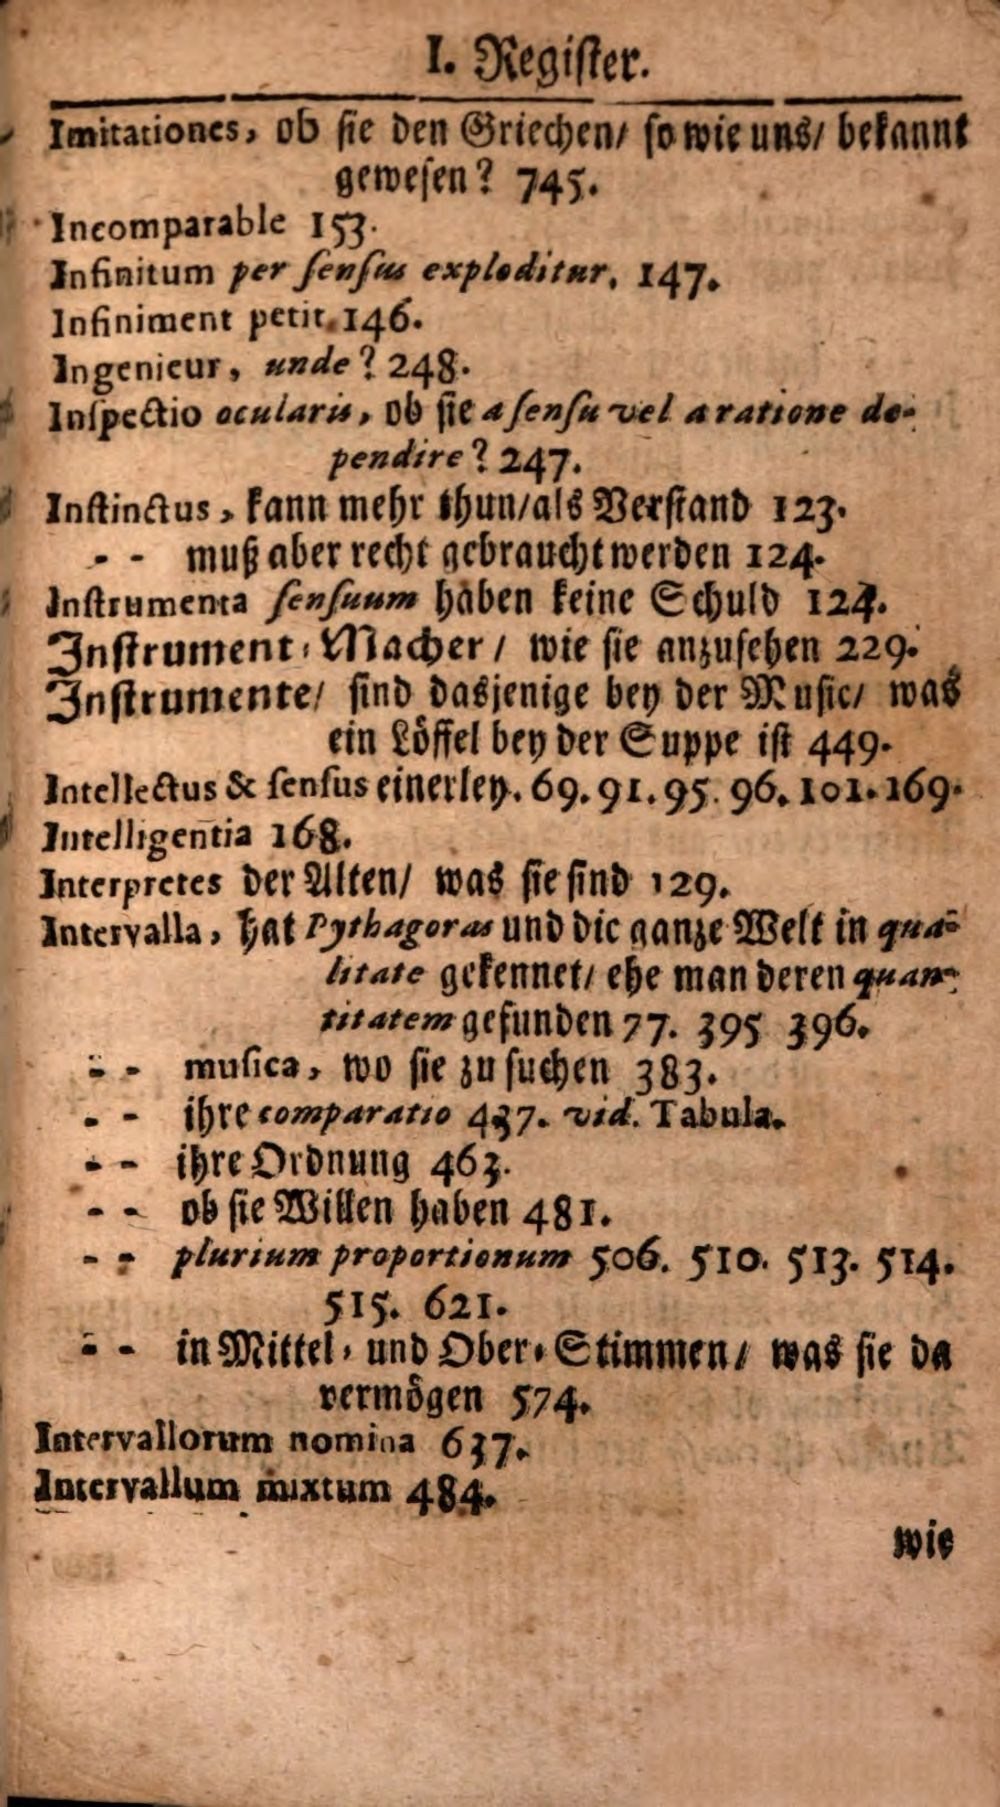 I. Register.
Imitationes, ob sie den Griechen/ so wie uns/ bekannt
gewesen? 745.
Incomparable 153.
Infinitum per sensus exploditur, 147.
Infiniment petit. 146.
Ingenieur, unde? 248.
Inspectio ocularis, ob sie a sensu vel a ratione de-
pendire? 247.
Instinctus, kann mehr thun/als Verstand 123.
- - muß aber recht gebraucht werden 124.
Instrumenta sensuum haben keine Schuld 124.
Instrument-Macher/ wie sie anzusehen 229.
Instrumente/ sind dasjenige bey der Music/ was
ein Löffel bey der Suppe ist 449.
Intellectus & sensus einerley. 69. 91. 95. 96. 101. 169.
Intelligentia 168.
Interpretes der Alten/ was sie sind 129.
Intervalla, hat Pythagoras und die ganze Welt in qua-
litate gekennet/ ehe man deren quan-
titatem gefunden 77. 395 396.
- - musica, wo sie zu suchen 383.
- - ihre comparatio 437. vid. Tabula.
- - ihre Ordnung 463.
- - ob sie Willen haben 481.
- - plurium proportionum 506. 510. 513. 514.
515. 621.
- - in Mittel- und Ober-Stimmen/ was sie da
vermögen 574.
Intervallorum nomina 637.
Intervallum mixtum 484.
wie